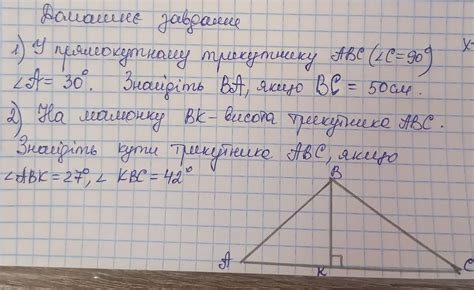 Домашнє завдання
1) У прямокутному трикутнику ABC (∠C=90°)
∠A=30°. Знайдіть BA, якщо BC = 50см.
2) На малюнку BK-висота трикутника ABC.
Знайдіть кути трикутника ABC, якщо
∠ABK=27°, ∠KBC=42°
B
A
K
C